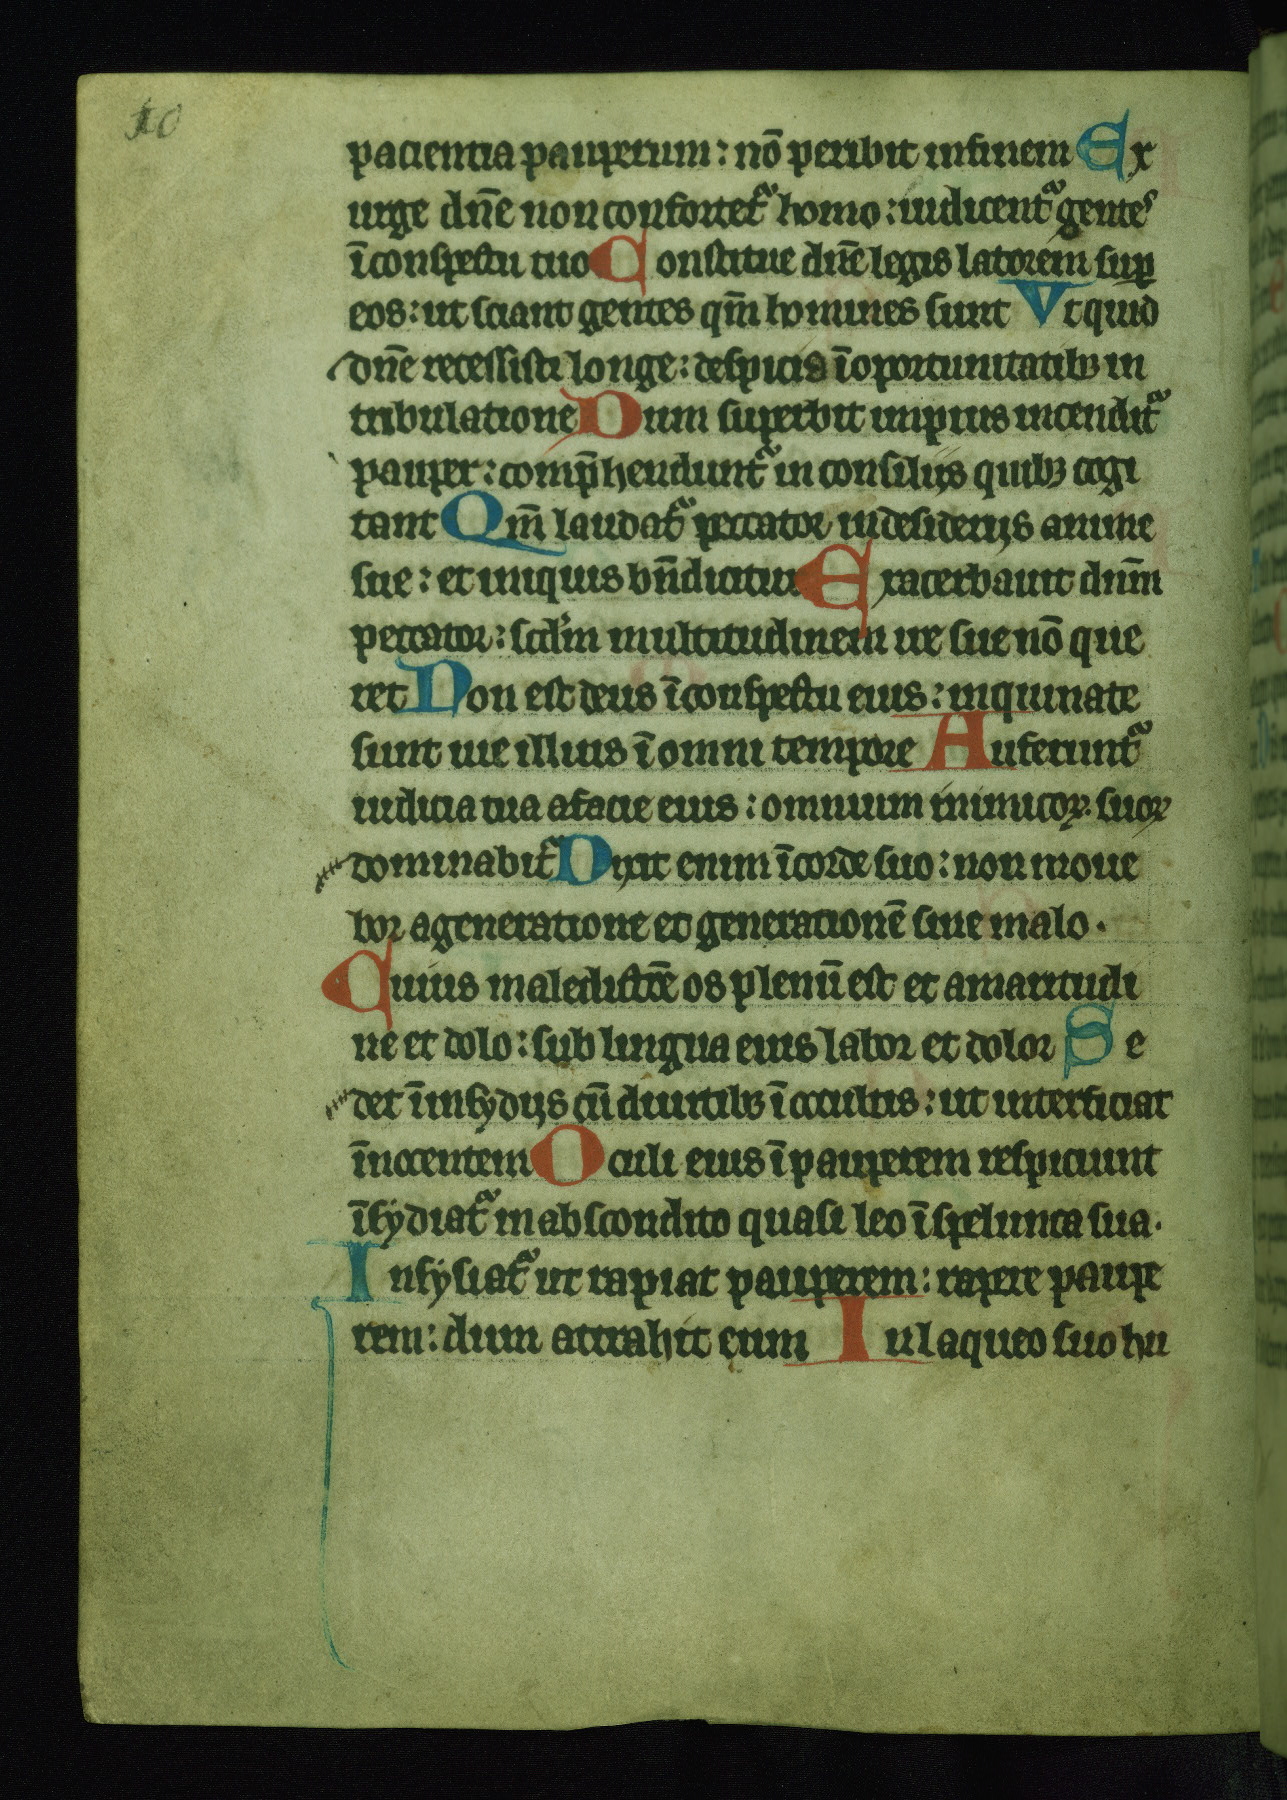 10
pacientia pauperum : nō peribit infinem Ex
urge dn̄e non confortetᷓ homo : iudicentᷓ gentes
ī conspectu tuo Constitue dn̄e legis latorem suꝑ
eos : ut sciant gentes qm̄ homines sunt Vt quid
dn̄e recessisti longe : despicis ī oportunitatibꝫ in
tribulatione Dum superbit impius incenditᷓ
pauper : comp̄henduntᷓ in consilijs quibꝫ cogi
tant Qm̄ laudatᷓ peccator in desiderijs anime
sue : et iniquus bn̄dicitur Exacerbauit dnm̄
peccator : scd̄m multitudinem ire sue nō que
ret Non est deus ī conspectu eius : inquinate
sunt uie illius ī omni tempore Auferuntᷓ
iudicia tua afacie eius : omnium inimicoꝝ suoꝝ
dominabitᷓ Dixit enim ī corde suo : non moue
bor ageneratione et generationē sine malo .
Cuius maledictōe os plenū est et amaritudi
ne et dolo : sub lingua eius labor et dolor Se
det ī insydijs cū diuitibꝫ ī occultis : ut interficiat
īnocentem Oculi eius ī pauperem respiciunt
īsydiatᷓ in abscondito quasi leo ī spelunca sua .
Insysiatᷓ ut rapiat pauperem : rapere paupe
rem : dum attrahit eum In laqueo suo hu